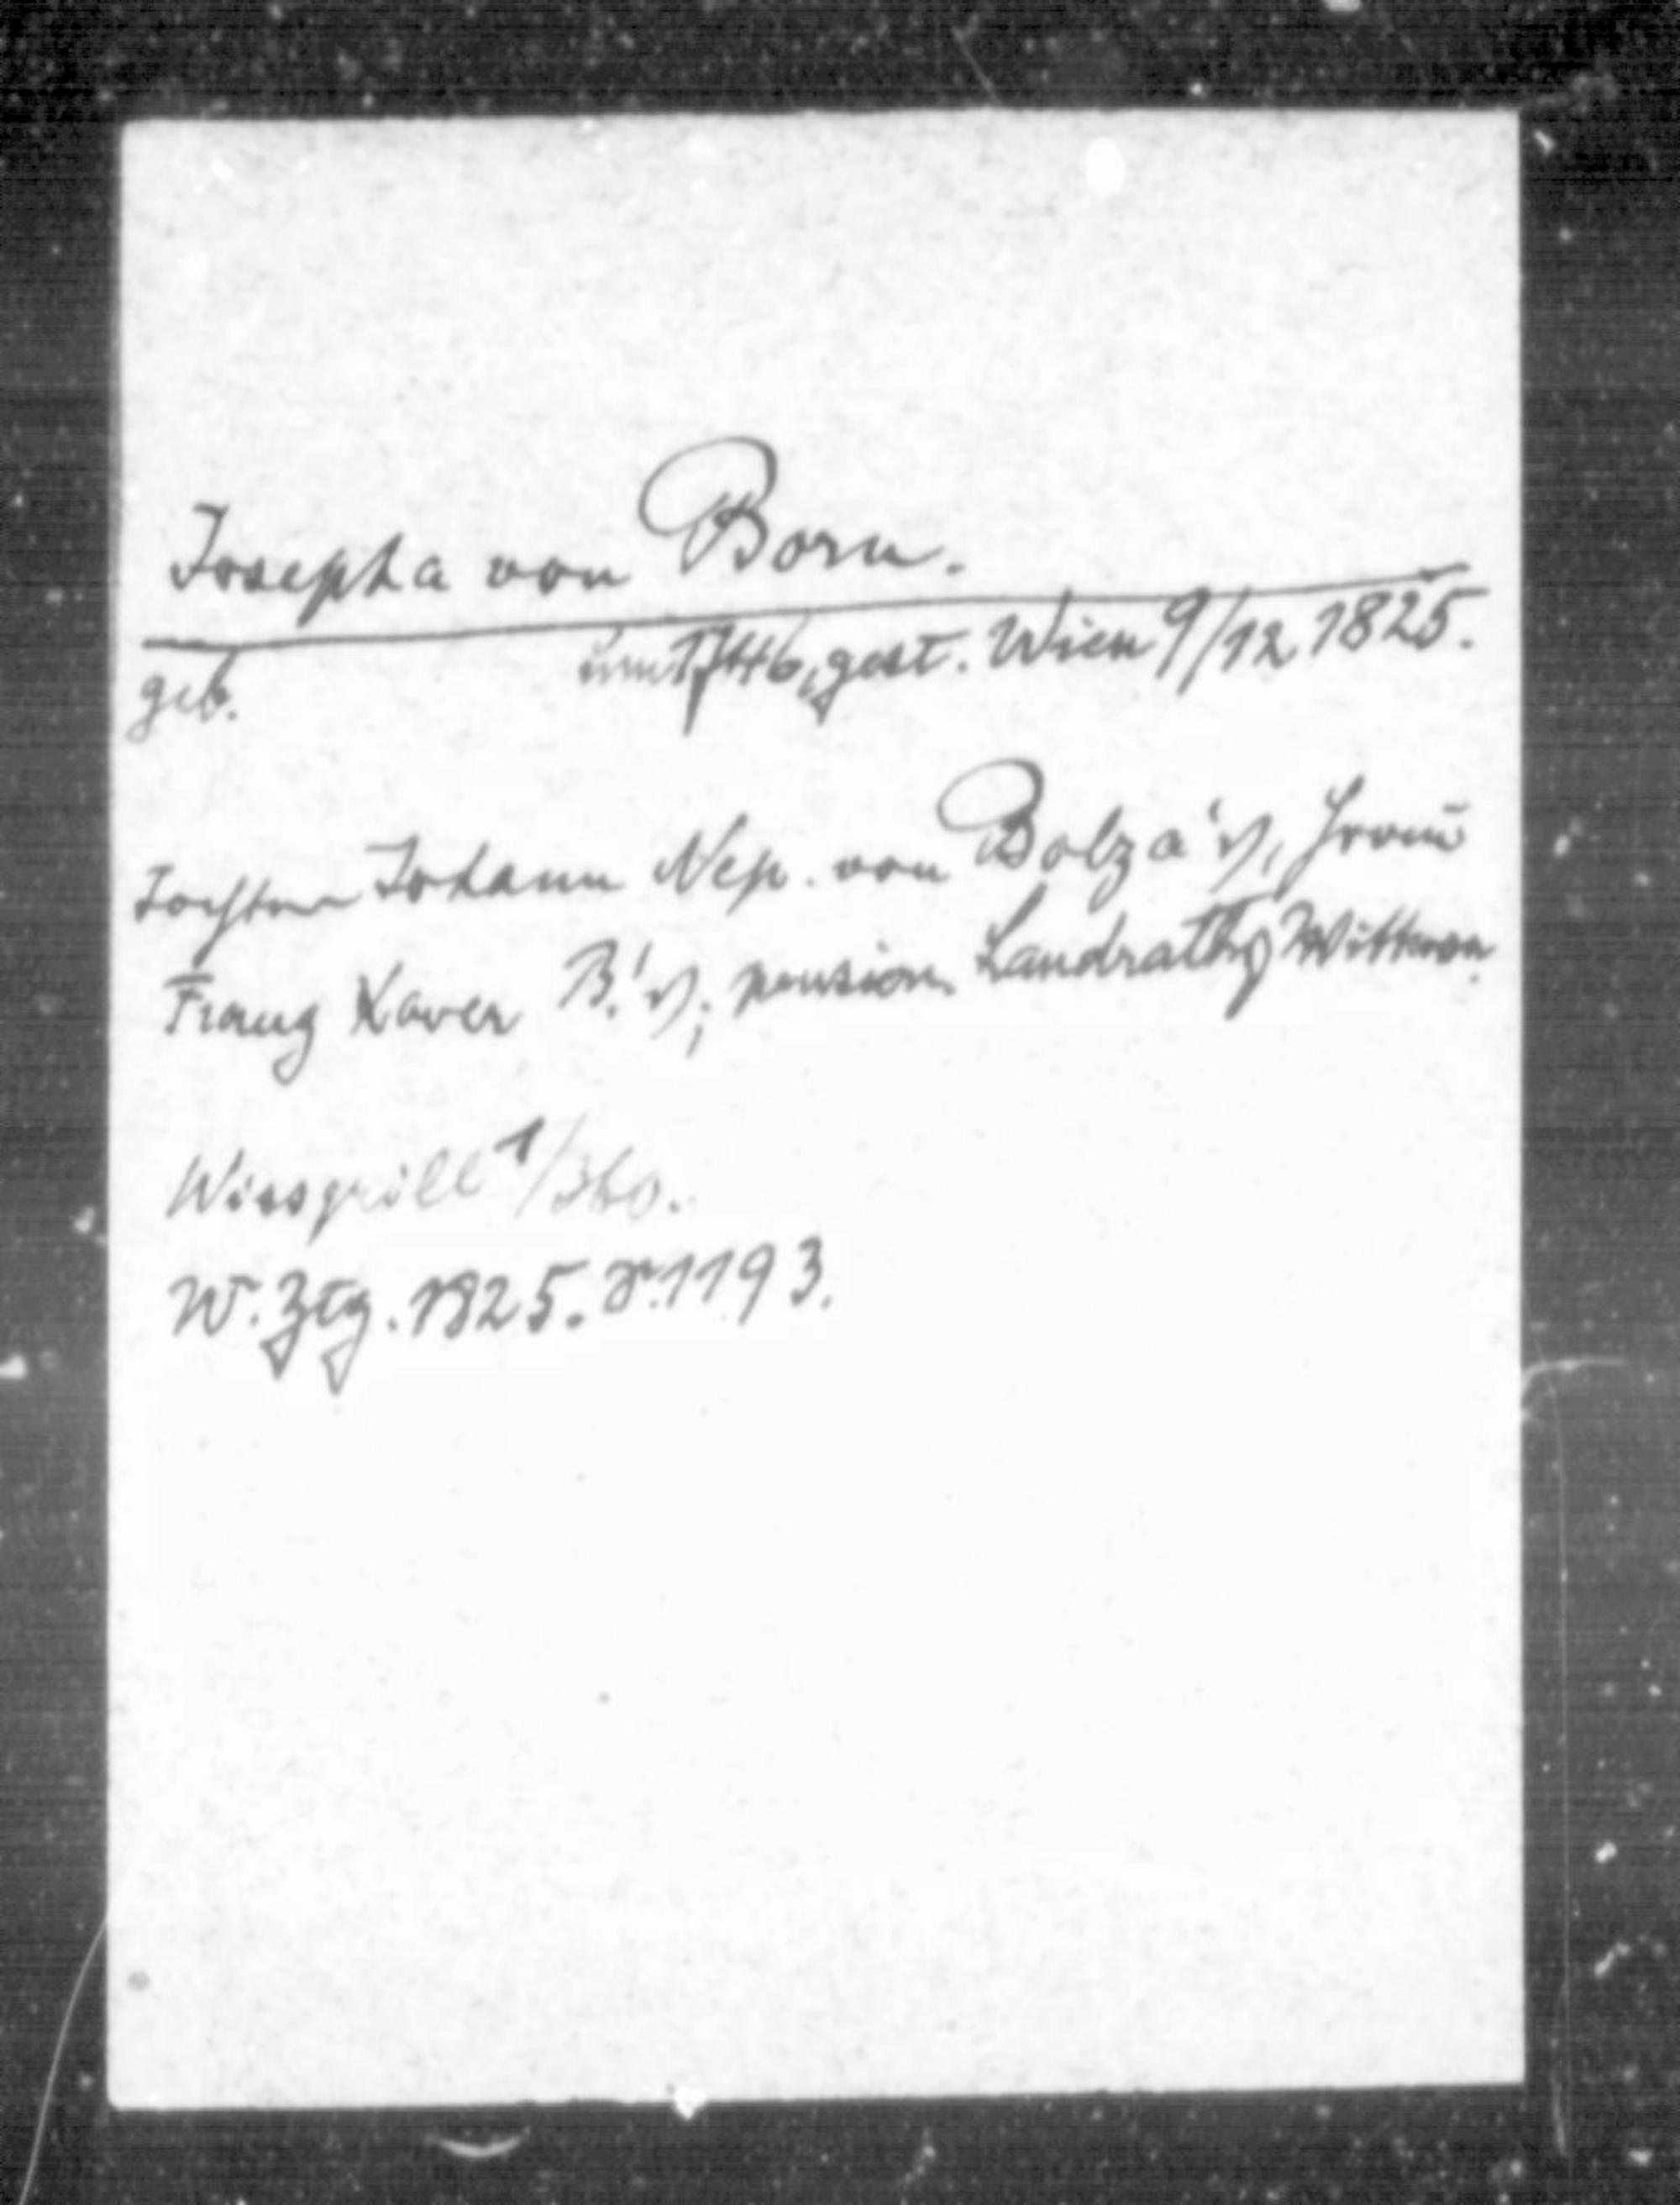 Josepha von Born.
geb. um 1746, gest. Wien 9/12 1825.
Tochter Johann Nep. von Bolza's, Frau
Franz Xaver B.'s; pension. Landraths Wittwe.
Wissgrill 1/360.
W. Ztg. 1825. S. 1193.